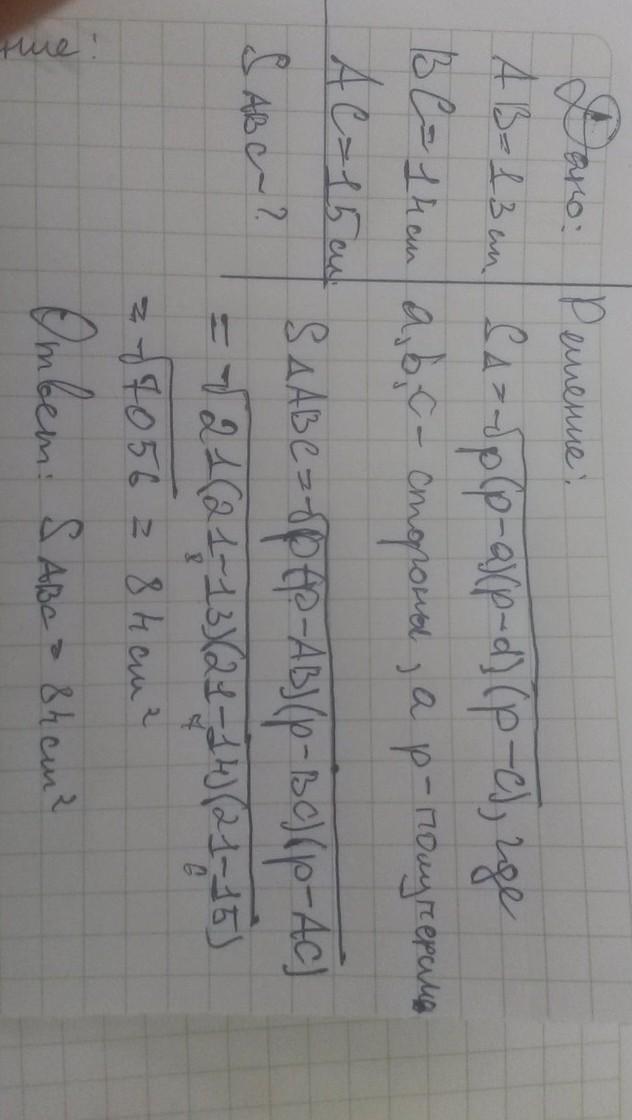 Дано:
AB=13см
BC=14см
AC=15см
S ABC-?
Решение:
SΔ=√p(p-a)(p-b)(p-c), где
a,b,c- стороны, а p-полупериметр
SΔABC=√p(p-AB)(p-BC)(p-AC)
=√21(21-13)(21-14)(21-15)
8 7 6
=√7056 = 84см²
Ответ: S ABC=84см²
ние: